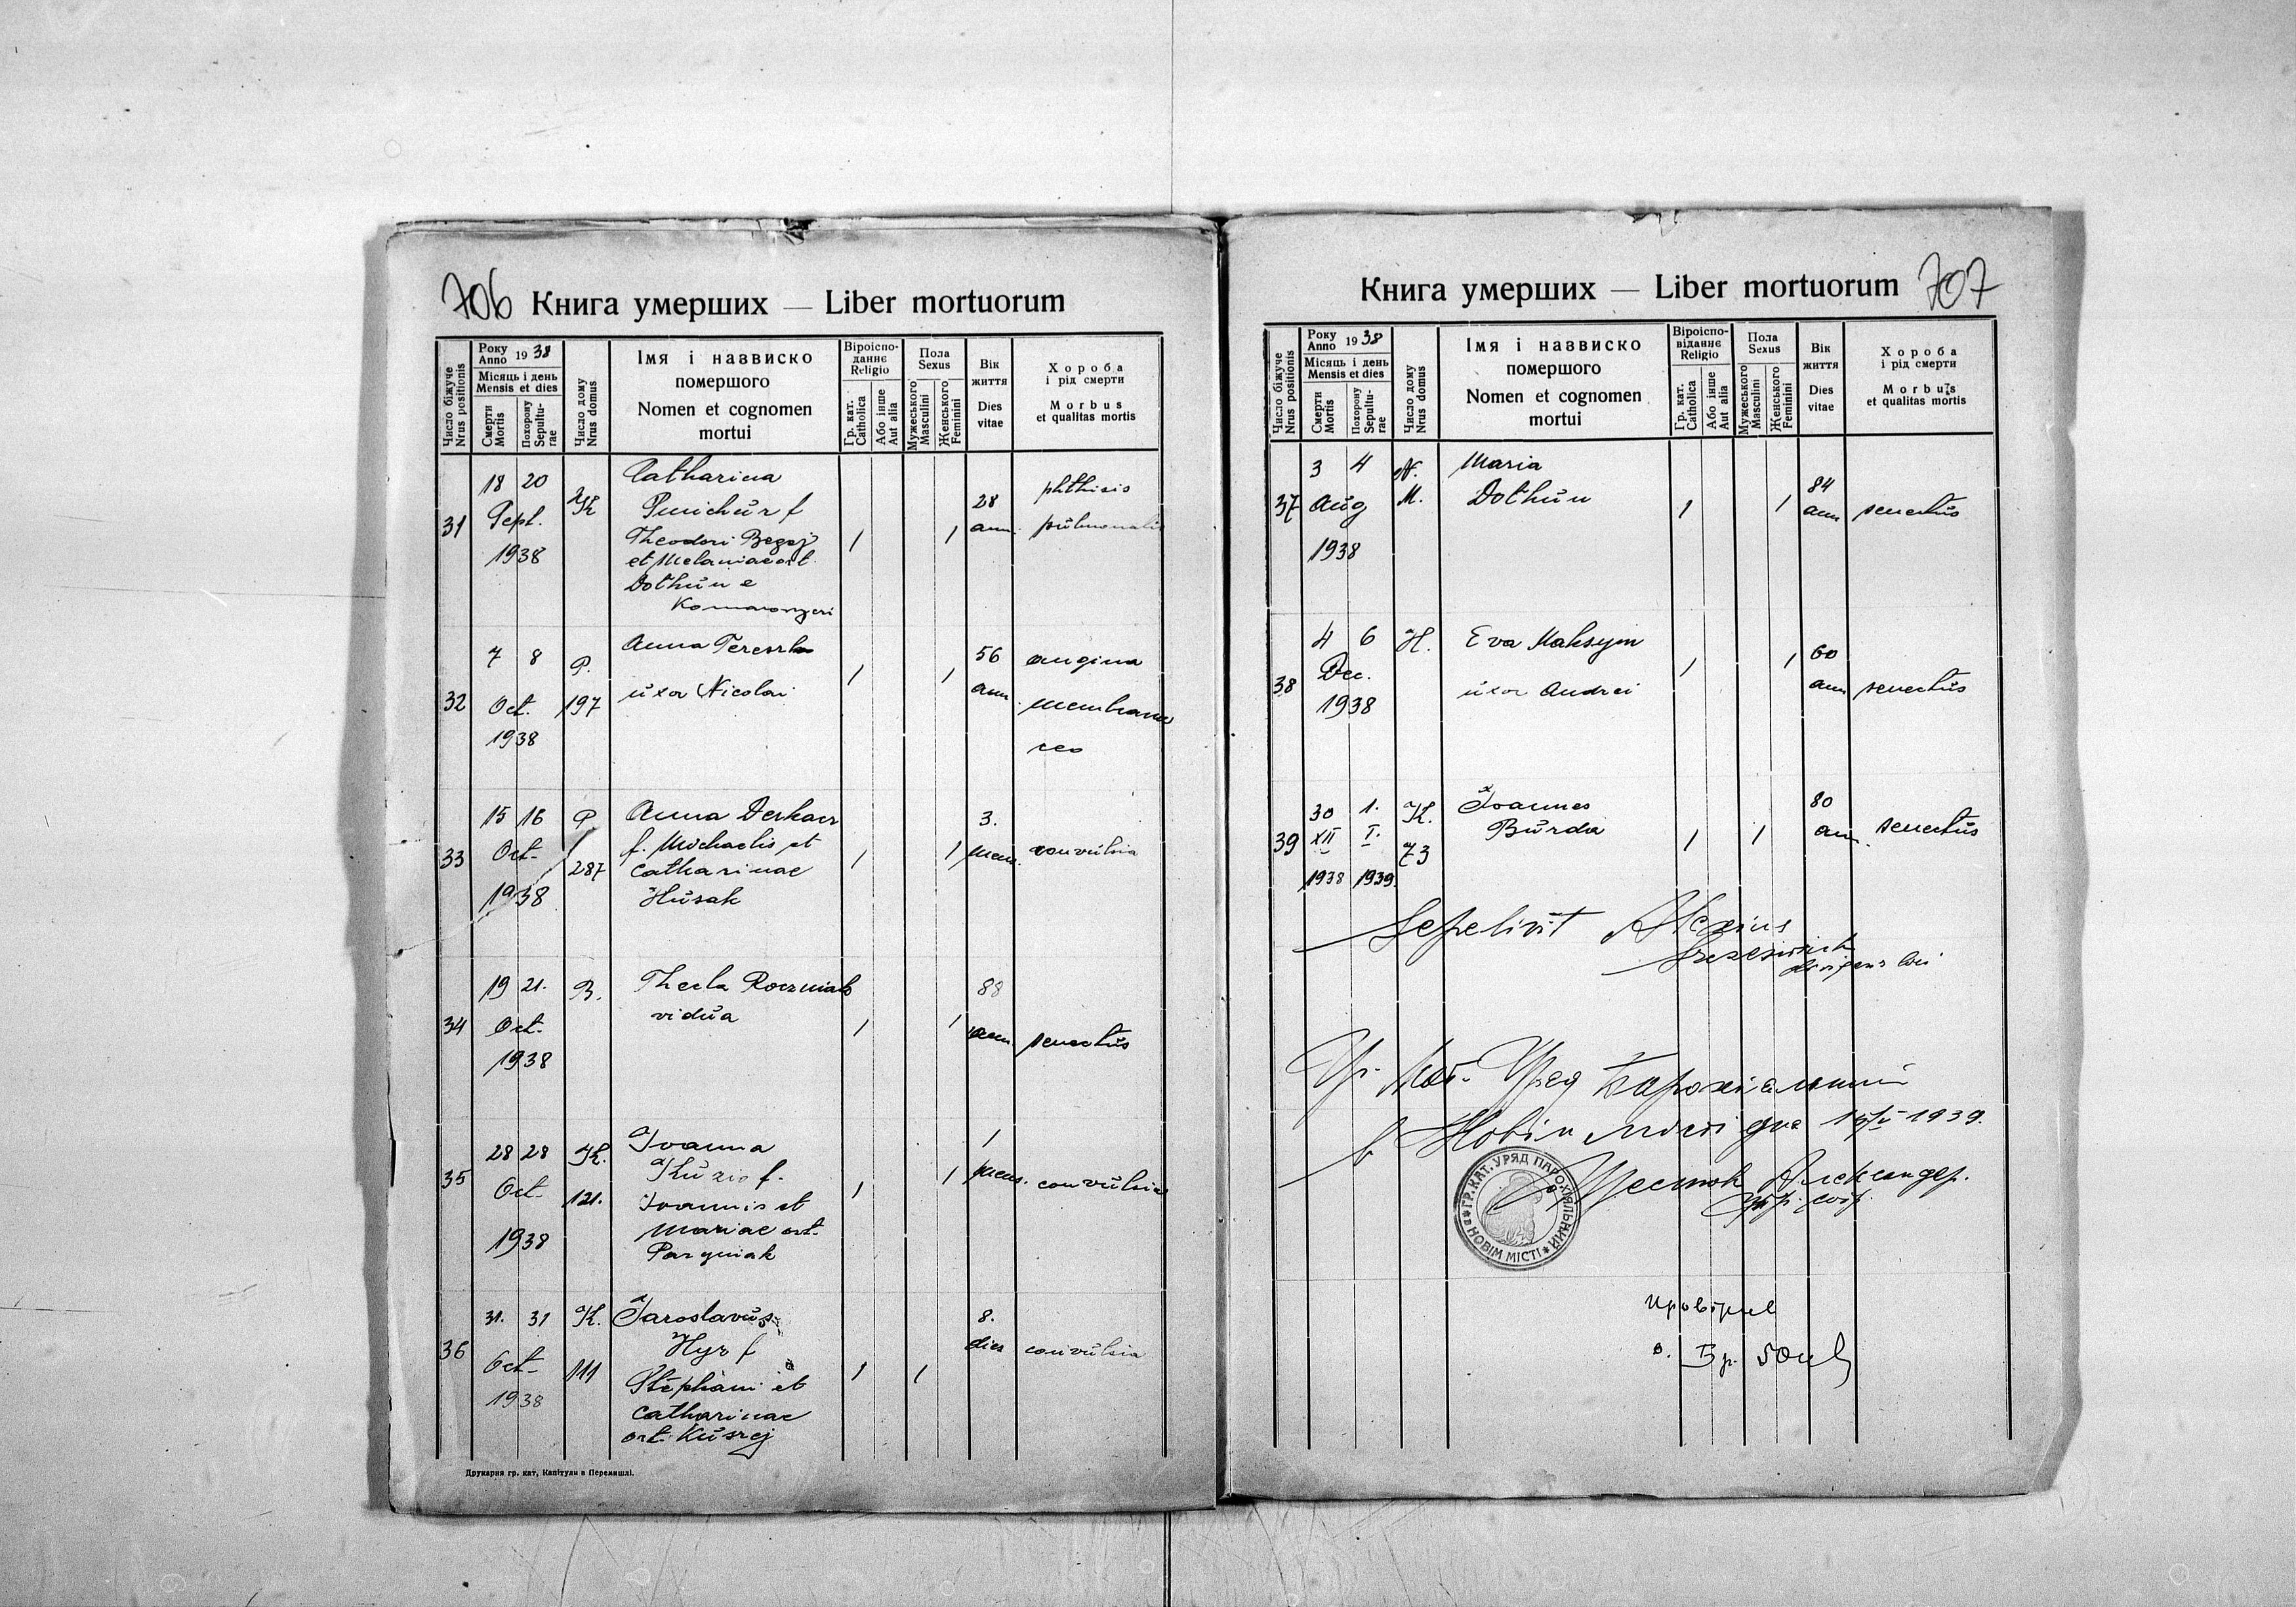 706 Книга умерших — Liber mortuorum
Число біжуче
Nrus positionis
Року
Anno 1938
Місяць і день
Mensis et dies
Смерти
Mortis
Похорону
Sepultu-
rae
Число дому
Nrus domus
Імя і назвиско
помершого
Nomen et cognomen
mortui
Віроіспо-
данне
Religio
Гр. кат.
Catholica
Або інше
Aut alia
Пола
Sexus
Мужеського
Masculini
Женського
Feminini
Вік
життя
Dies
vitae
Хороба
і рід смерти
Morbus
et qualitas mortis
31
18 20
Sept.
1938
Catharina
f
Theodori
et Melaniae ort.
Dothun e
1 1
28
ann.
phthisis
pulmonalis
32
7 8
Oct.
1938
P.
197
Anna
uxor Nicolai
1 1
56
ann.
angina
membrana
cea
33
15 16
Oct.
1938
P
287
Anna Derkacz
f. Michaelis et
Catharinae
Husak
1 1
3.
mens.
convulsia
34
19 21.
Oct.
1938
B.
Thecla Roczniak
vidua
1 1
88
ann
senectus
35
28 28
Oct.
1938
K.
121.
Ivanna
Kuzio f.
Ioannis et
Mariae ort.
1 1
1
mens.
convulsia
36
31. 31
Oct.
1938
K.
111
Jaroslavus
Hyr f
Stephani et
Catharinae
ort.
1 1
8.
dies
convulsia
Друкарня гр. кат, Капітули в Перемишлі.
Книга умерших — Liber mortuorum 707
Число біжуче
Nrus positionis
Року
Anno 1938
Місяць і день
Mensis et dies
Смерти
Mortis
Похорону
Sepultu-
rae
Число дому
Nrus domus
Імя і назвиско
помершого
Nomen et cognomen
mortui
Віроіспо-
віданне
Religio
Гр. кат.
Catholica
Або інше
Aut alia
Пола
Sexus
Мужеського
Masculini
Женського
Feminini
Вік
життя
Dies
vitae
Хороба
і рід смерти
Morbus
et qualitas mortis
37
3 4
Aug
1938
N.
M.
Maria
Dothun
1 1
84
ann
senectus
38
4 6
Dec.
1938
H.
Eva Maksym
uxor Andrei
1 1
60
ann
senectus
39
30 1.
XII I.
1938 1939.
K.
73
Ioannes
Burda
1 1
80
ann.
senectus
Sepelivit Alexius
Гр. Кат. Уряд Парохіальний
в Новім Місті дня 1939.
Александер.
ГР. КАТ. УРЯД ПАРОХІЯЛЬНИЙ В НОВІМ МІСТІ
провірив
о.